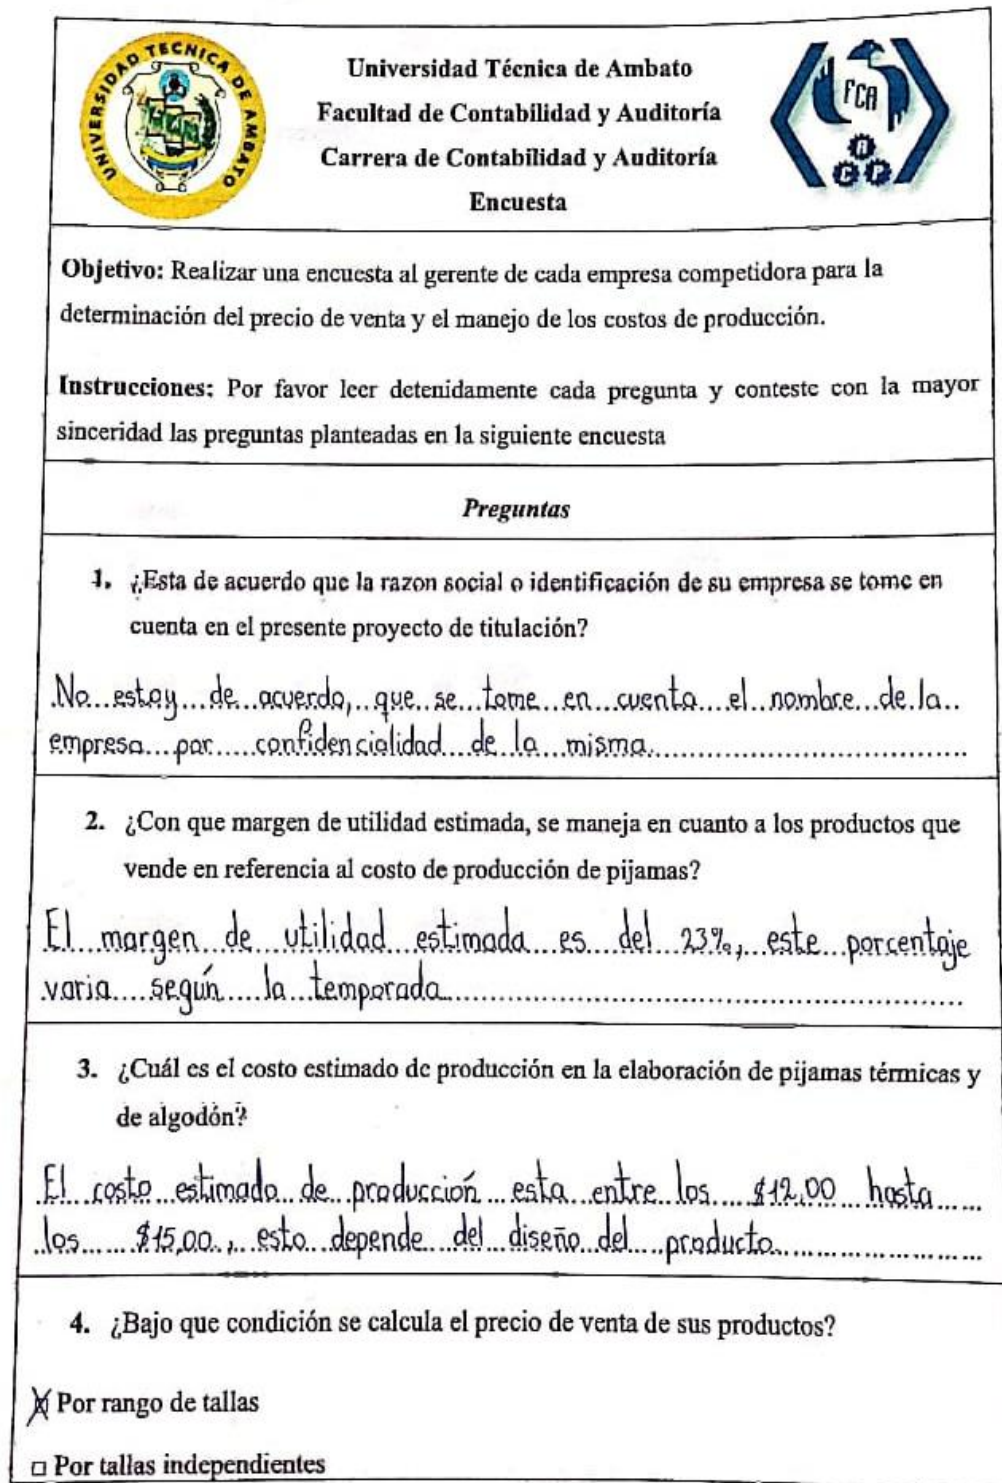 UNIVERSIDAD TECNICA DE AMBATO
Universidad Técnica de Ambato
Facultad de Contabilidad y Auditoría
Carrera de Contabilidad y Auditoría
Encuesta
FCA
A
C P
Objetivo: Realizar una encuesta al gerente de cada empresa competidora para la
determinación del precio de venta y el manejo de los costos de producción.
Instrucciones: Por favor leer detenidamente cada pregunta y conteste con la mayor
sinceridad las preguntas planteadas en la siguiente encuesta
Preguntas
1. ¿Esta de acuerdo que la razon social o identificación de su empresa se tome en
cuenta en el presente proyecto de titulación?
No estoy de acuerdo, que se tome en cuenta el nombre de la
empresa por confidencialidad de la misma.
2. ¿Con que margen de utilidad estimada, se maneja en cuanto a los productos que
vende en referencia al costo de producción de pijamas?
El margen de utilidad estimada es del 23%, este porcentaje
varia según la temporada
3. ¿Cuál es el costo estimado de producción en la elaboración de pijamas térmicas y
de algodón?
El costo estimado de producción esta entre los $12,00 hasta
los $15,00, esto depende del diseño del producto
4. ¿Bajo que condición se calcula el precio de venta de sus productos?
☒ Por rango de tallas
□ Por tallas independientes